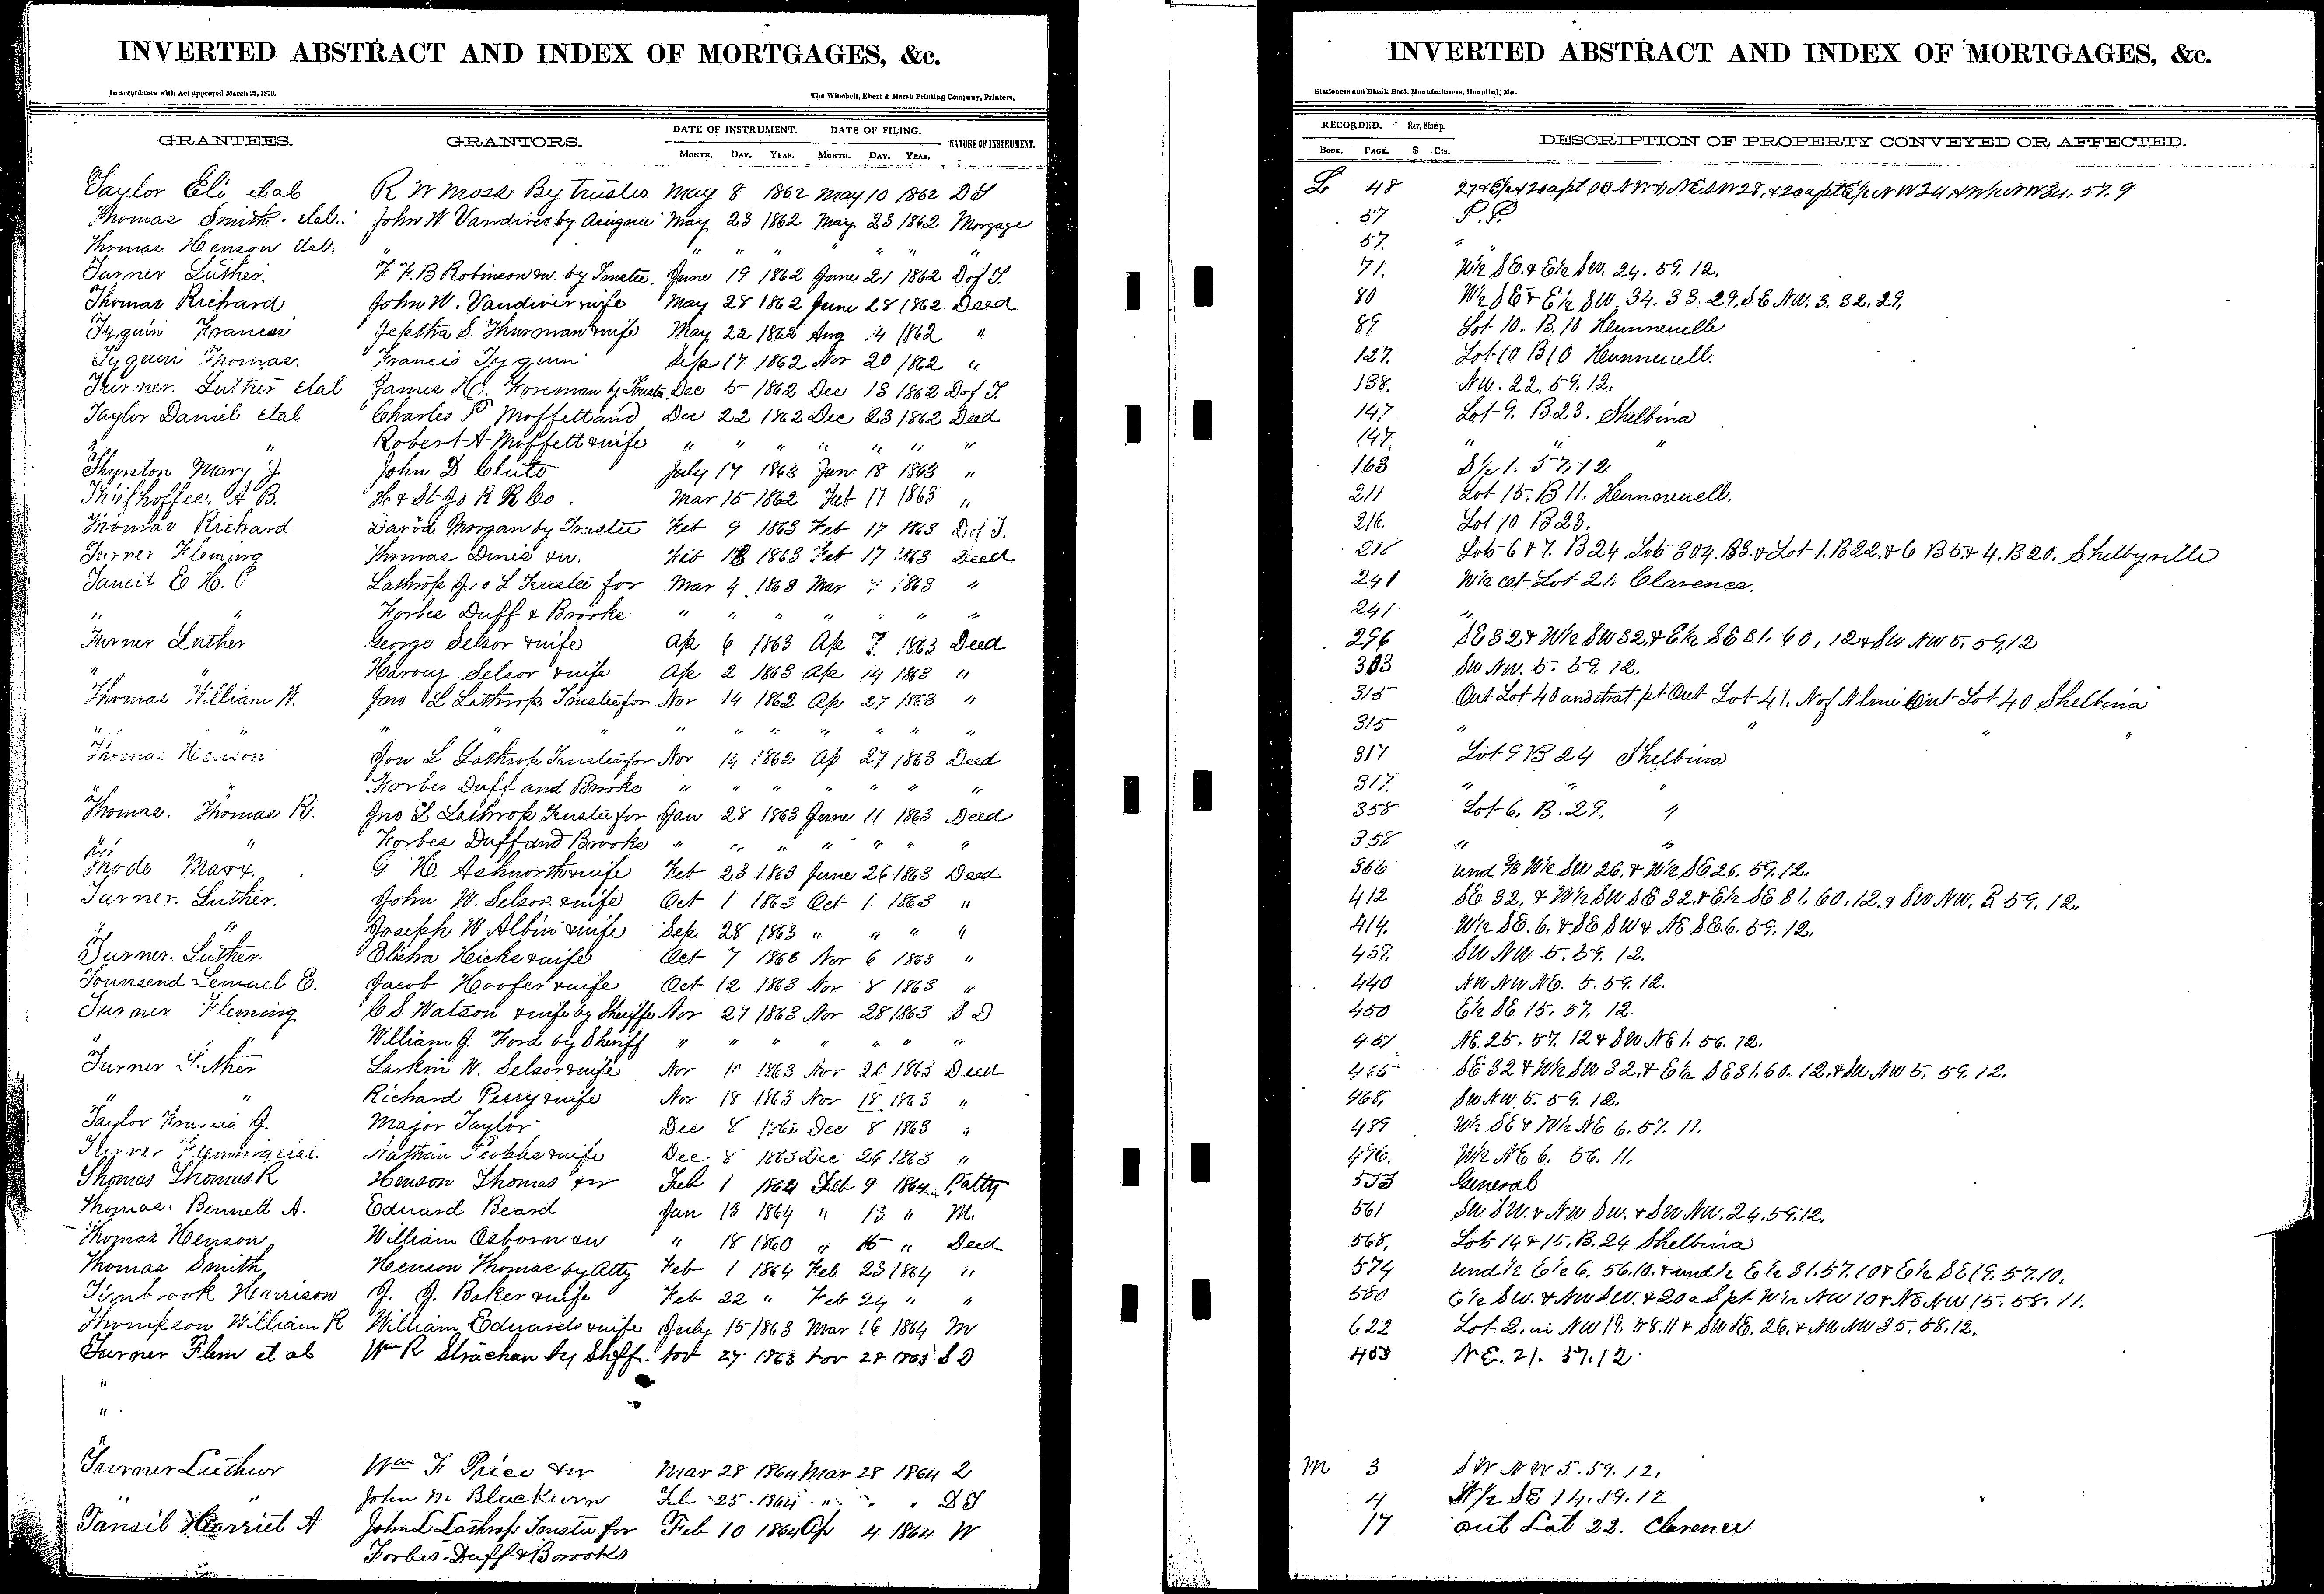 INVERTED ABSTRACT AND INDEX OF MORTGAGES, &c.
In accordance with Act approved March 25, 1870.
The Winchell, Ebert & Marsh Printing Company, Printers,
GRANTEES. GRANTORS. DATE OF INSTRUMENT. DATE OF FILING. NATURE OF INSTRUMENT.
MONTH. DAY. YEAR. MONTH. DAY. YEAR.
Taylor Eli etal R W Moss By trustee May 8 1862 May 10 1862 D T
Thomas Smith. etal. John W Vandiver by Assignee May 23 1862 May 23 1862 Morgage
Thomas Henson etal. " " " " " " " "
Turner Luther. F. F. B Robinson & w. by Trustee. June 19 1862 June 21 1862 D of T.
Thomas Richard John W. Vandiver & wife May 28 1862 June 28 1862 Deed
Tyquin Francis Jeptha S. Thurman & wife May 22 1862 Aug 4 1862 "
Tyquin Thomas. Francis Tyquin Sep 17 1862 Nov 20 1862 "
Turner. Luther etal James H. Foreman by Trustee Dec 5 1862 Dec 13 1862 D of T.
Taylor Daniel etal Charles P Moffett and Dec 22 1862 Dec 23 1862 Deed
" " Robert A Moffett & wife " " " " " " "
Thurston Mary J John D Clute July 17 1863 Jan 18 1863 "
Thiefhoffee. A B. H. & St Jo R R Co. Mar 15 1862 Feb 17 1863 "
Thomas Richard David Morgan by Trustee Feb 9 1863 Feb 17 1863 D of T.
Turner Fleming Thomas Dines & w. Feb 17 1863 Feb 17 1863 Deed
E H. Lathrop Jno L Trustee for Mar 4 1863 Mar 1863 "
" " Forbes Duff & Brooke " " " " " " "
Turner Luther George Selsor & wife Ap 6 1863 Ap 7 1863 Deed
" " Harvey Selsor & wife Ap 2 1863 Ap 14 1863 "
Thomas William W. Jno L Lathrop Trustee for Nov 14 1862 Ap 27 1863 "
" " " " " " " " " " "
Thomas Henson Jon L Lathrop Trustee for Nov 14 1862 Ap 27 1863 Deed
" Forbes Duff and Brooke " " " " " " "
Thomas. Thomas R. Jno L Lathrop Trustee for Jan 28 1863 June 11 1863 Deed
" " Forbes Duff and Brooke " " " " " " "
Rhode Mary. G H Ashworth & wife Feb 23 1863 June 26 1863 Deed
Turner. Luther. John W. Selsor. & wife Oct 1 1863 Oct 1 1863 "
" " Joseph W Albin & wife Sep 28 1863 " " " "
Turner. Luther. Elisha Hicks & wife Oct 7 1863 Nov 6 1863 "
Tounsend Lemuel E. Jacob Hoofer & wife Oct 12 1863 Nov 8 1863 "
Turner Fleming C S Watson & wife by Sheriffe Nov 27 1863 Nov 28 1863 S D
" " William J. Ford by Sheriff " " " " " " "
Turner Luther Larkin W. Selsor & wife Nov 1863 Nov 1863 Deed
" " Richard Perry & wife Nov 18 1863 Nov 18 1863 "
Taylor Francis J. Major Taylor Dec 8 Dec 8 1863 "
Turner Nathan & wife Dec. 8 1863 Dec 26 1863 "
Thomas Thomas R Henson Thomas & w Feb 1 1864 Feb 9 1864 P. atty
Thomas. Bennett A. Eduard Beard Jan 13 1864 " 13 " M.
Thomas Henson William Osborn & w " 18 1860 " 15 " Deed
Thomas Smith Henson Thomas by Atty Feb 1 1864 Feb 23 1864 "
Timbrook Harrison J. J. Baker & wife Feb 22 " Feb 24 " "
Thompson William R William Eduards & wife July 15 1863 Mar 16 1864 M
Turner Flem et al Wm R Strachan by Shff. Nov 27 1863 Nov 28 1863 S D
"
"
"
Turner Luthur Wm F Price & w Mar 28 1864 Mar 28 1864 2
" " John M Blackurn Feb 25 1864 " " " D T
Tansil Harriet A John L Lathrop Trustee for Feb 10 1864 Ap 4 1864 W
Forbes. Duff & Brooks
INVERTED ABSTRACT AND INDEX OF MORTGAGES, &c.
Stationers and Blank Book Manufacturers, Hannibal, Mo.
RECORDED. Rev. Stamp. DESCRIPTION OF PROPERTY CONVEYED OR AFFECTED.
BOOK. PAGE. $ Cts.
L 48
57 P.P.
57. "
71. W½ SE. & E½ SW. 24. 59. 12.
80 W½ SE & E½ SW. 34. 33. 29. SE NW. 3. 32. 29.
89 Lot 10. B. 10 Hunnewelle
127. Lot 10 B 10 Hunnewell.
138. NW. 22. 59. 12.
147 Lot 9. B 23. Shelbina
147 " " "
163 S½ 1. 57. 12
211 Lot 15. B 11. Hunnewell.
216. Lot 10 B 23.
218 Lots 6 & 7. B 24. Lots 8 & 9. B 3. & Lot 1. B 22. & 6 B 5. & 4. B 20. Shelbyville
241 W½ out Lot 21. Clarence.
241 "
296 SE 32. & W½ SW 32. & E½ SE 31. 60. 12 & SW NW 5. 59. 12
303 SW NW. 5. 59. 12.
315 Out Lot 40 and that pt Out Lot 41. N of N line Out Lot 40 Shelbina
315 " " "
317 Lot 9 B 24 Shelbina
317. " " "
358 Lot 6. B. 29. "
358 " "
366 und ⅓ W½ SW 26. & W½ SE 26. 59. 12.
412 SE 32. & W½ SW SE 32. & E½ SE 31. 60. 12. & SW NW. 5 59. 12.
414. W½ SE. 6. & SE SW & NE SE 6. 59. 12.
437. SW NW 5. 59. 12.
440 NW NW NE. 5. 59. 12.
450 E½ SE 15. 57. 12.
451 NE. 25. 57. 12 & SW NE 1. 56. 12.
SE 32 & W½ SW 32. & E½ SE 31. 60. 12. & SW NW 5. 59. 12.
468. SW NW. 5. 59. 12.
489 W½ SE & W½ NE 6. 57. 11.
496. W½ NE 6. 56. 11.
553 General
561 SW SW. & NW SW. & SW NW. 24. 59. 12.
568. Lots 14 & 15. B. 24 Shelbina
574 und ½ E½ 6. 56. 10. & und ½ E½ 31. 57. 10 & E½ SE 19. 57. 10.
580 E½ SW. & NW SW. & 20 a S pt W½ NW 10 & NE NW 15. 58. 11.
622 Lot 2. in NW 19. 58. 11 & SW SE. 26. & NW NW 35. 58. 12.
453 NE. 21. 57. 12
M 3 SW NW 5. 59. 12.
4 W½ SE 14. 59. 12
17 out Lot 22. Clarence